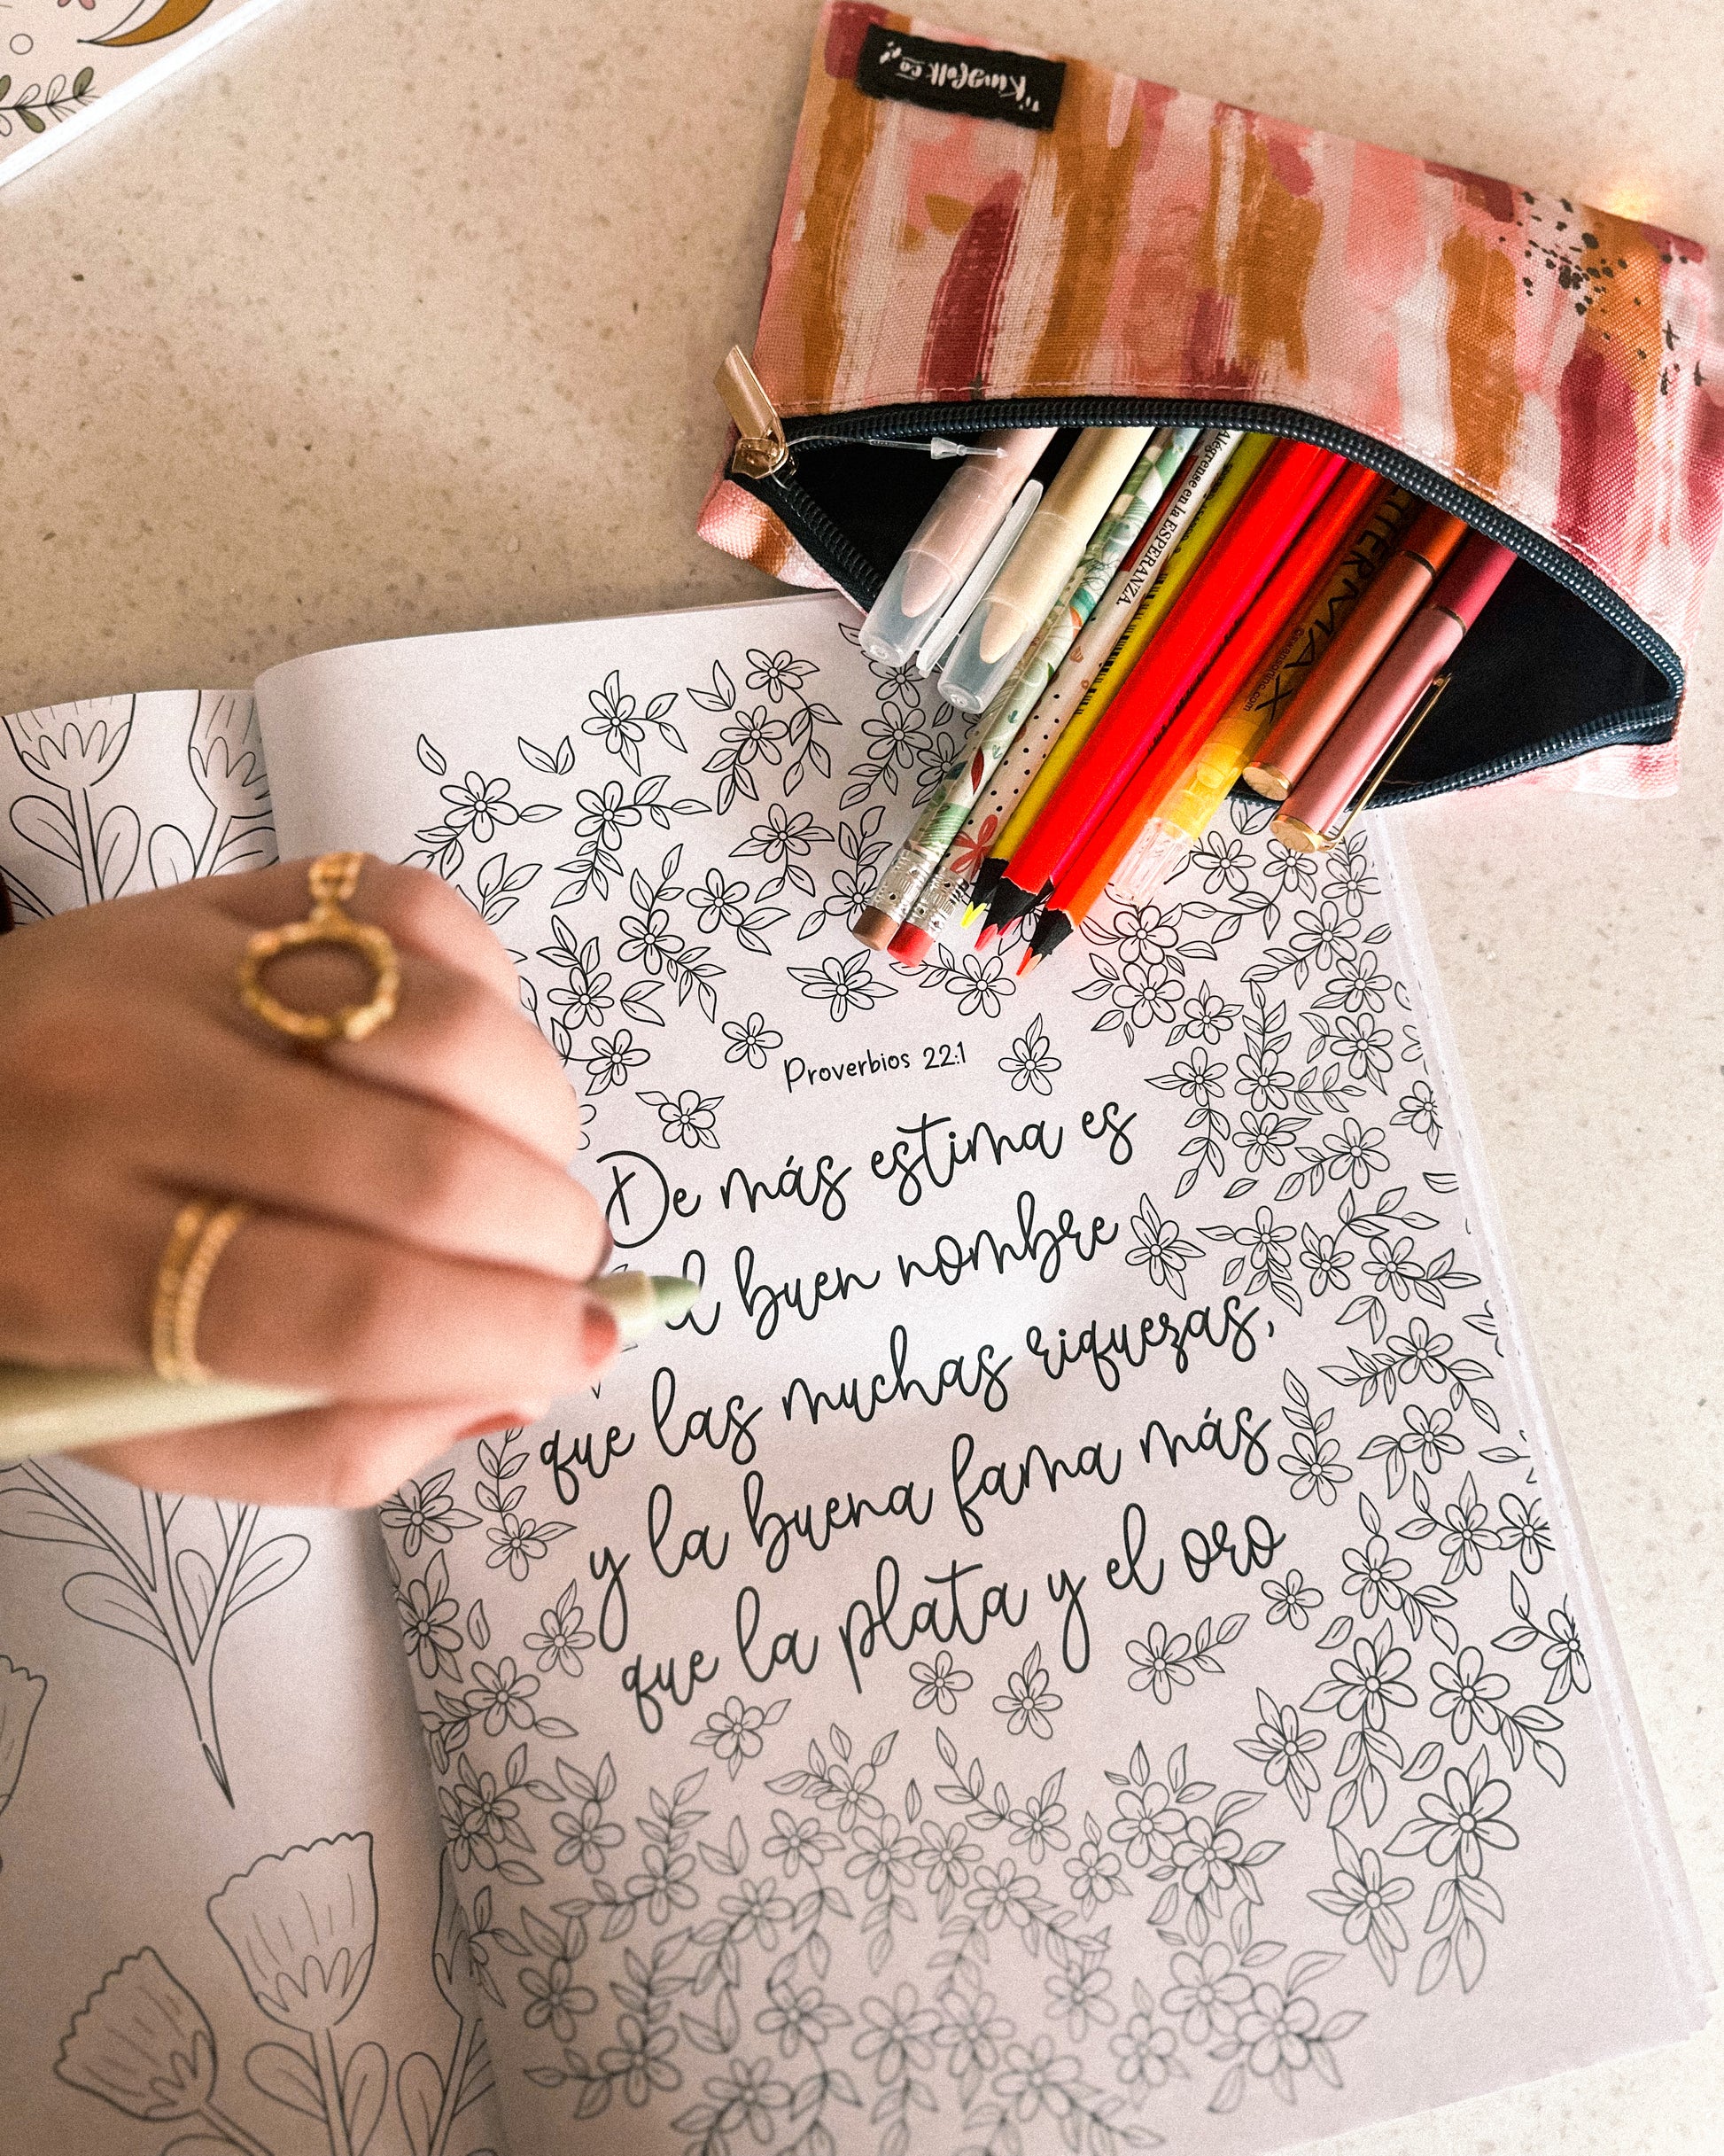 Kingfolk co
Alégrense en la ESPERANZA.
Proverbios 22:1
De más estima es
el buen nombre
que las muchas riquezas,
y la buena fama más
que la plata y el oro